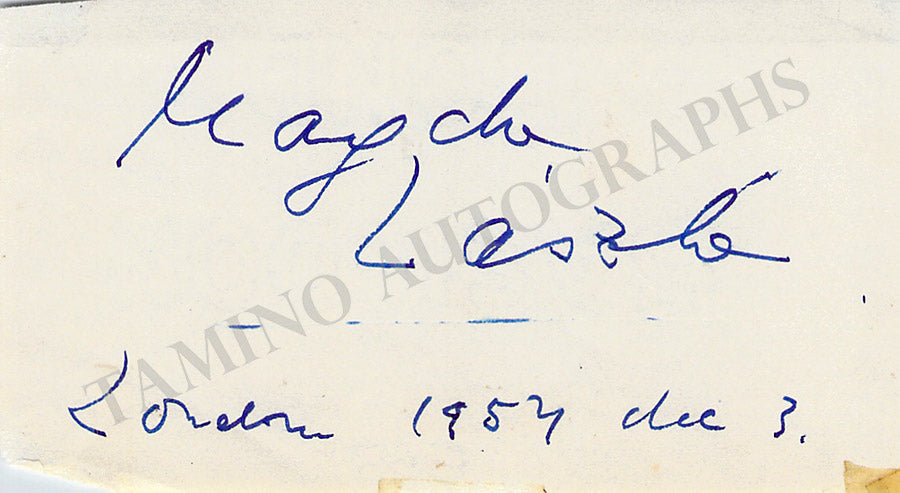 Magda
László
London 1954 dec 3.
TAMINO AUTOGRAPHS